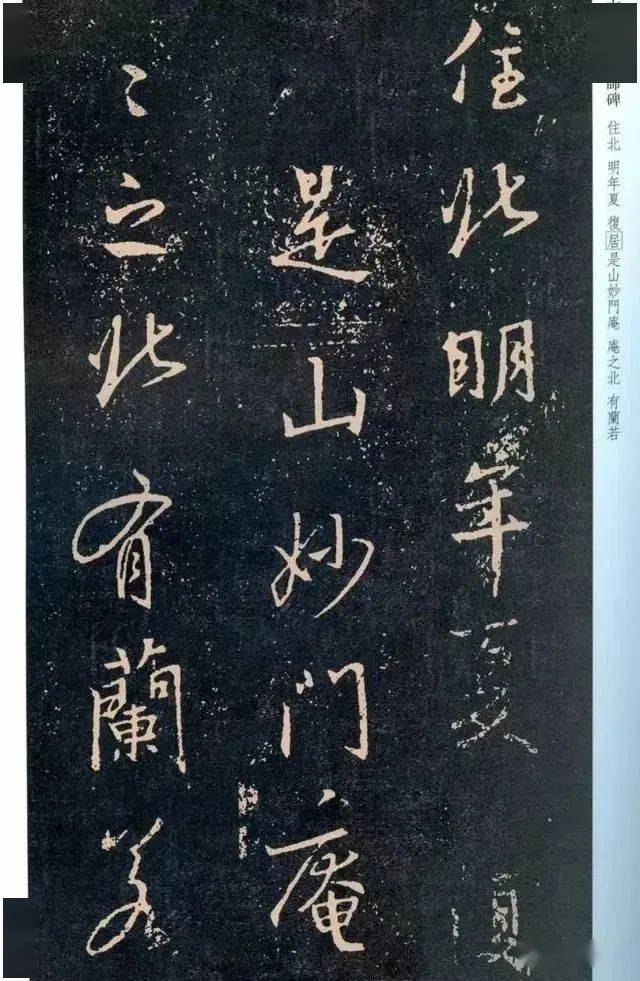 住北明年夏復
是山妙門庵
〻之北有蘭若
師碑 住北 明年夏 復居是山妙門庵 庵之北 有蘭若